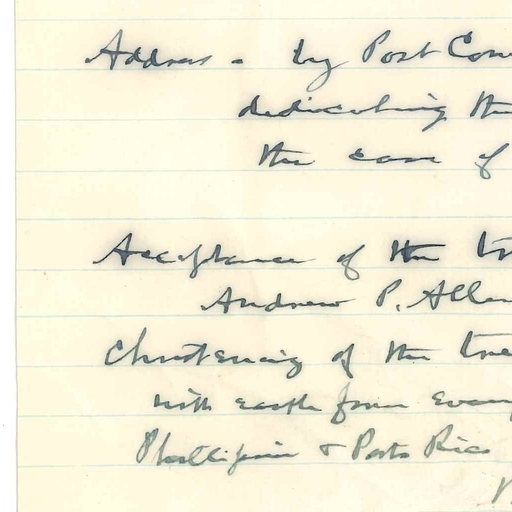 Address - by Post Com
dedicating the
the care of
Acceptance of the tr
Andrew P. Allen
Christening of the tree
with earth from every
Phillipine & Porto Rico